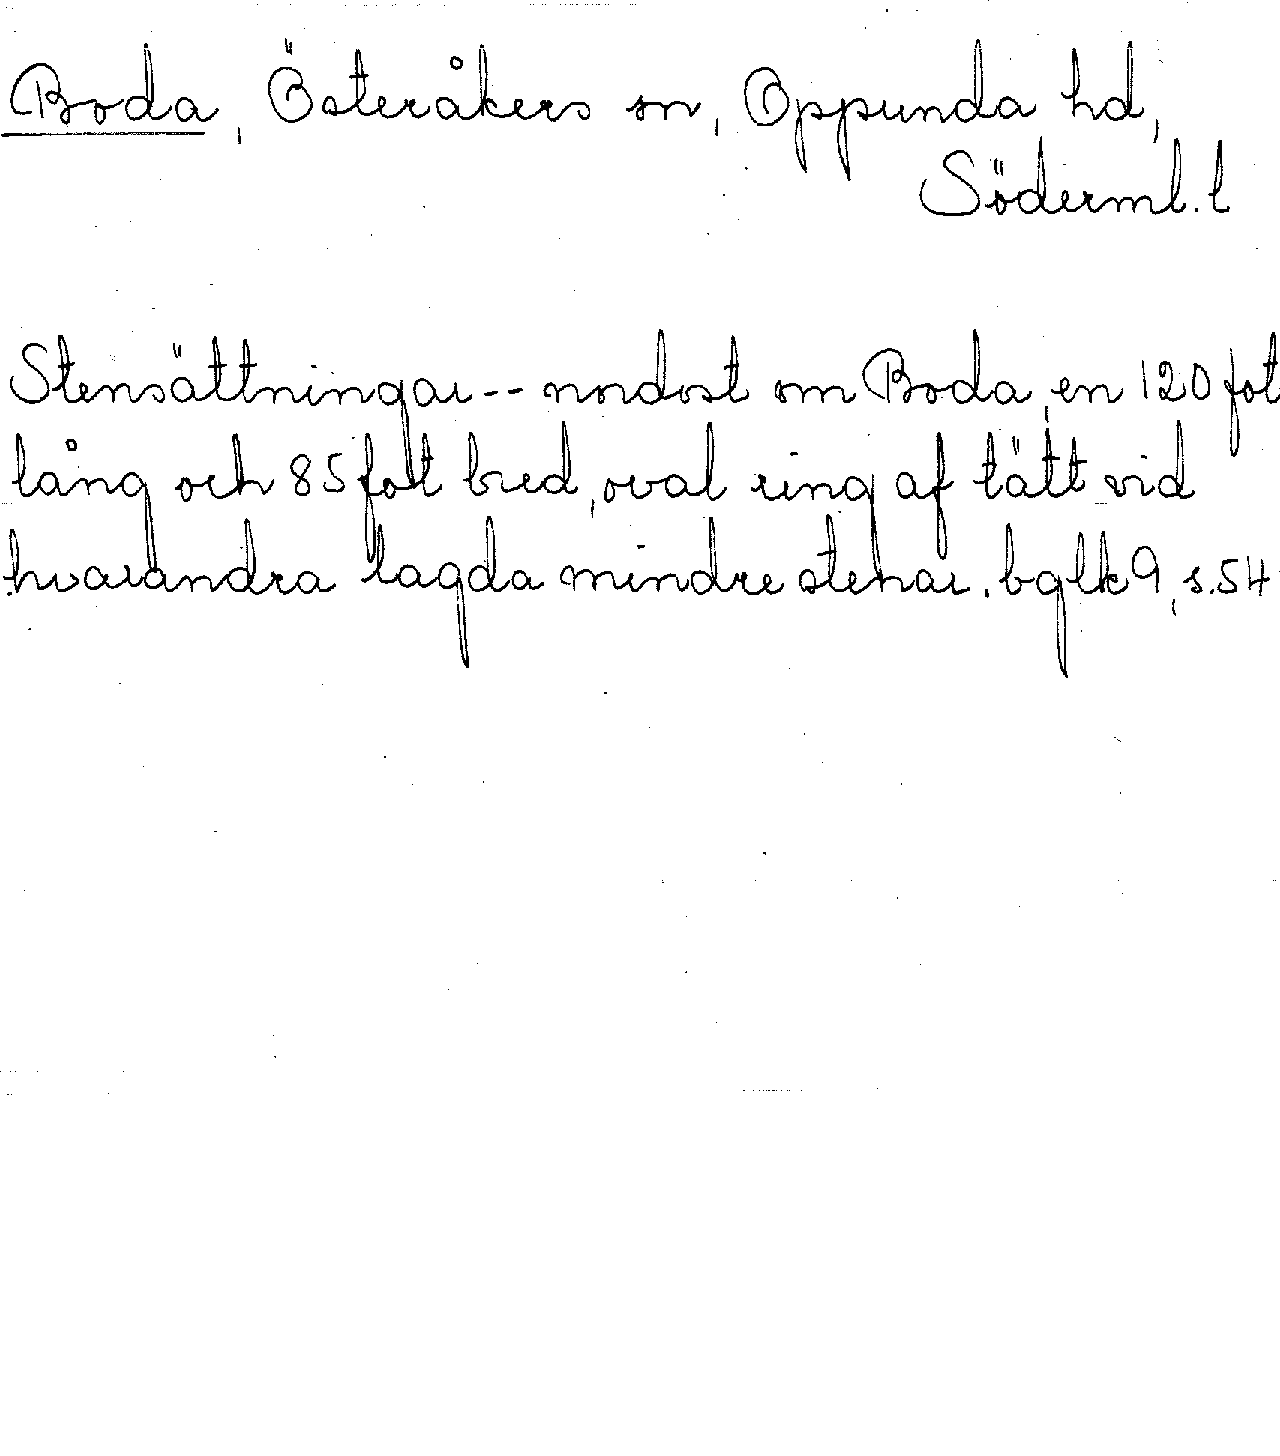 Boda, Österåkers sn, Oppunda hd,
Söderml. l
Stensättningar -- nordost om Boda, en 120 fot
lång och 85 fot bred, oval ring af tätt vid
hvarandra lagda mindre stenar. bglk 9, s. 54